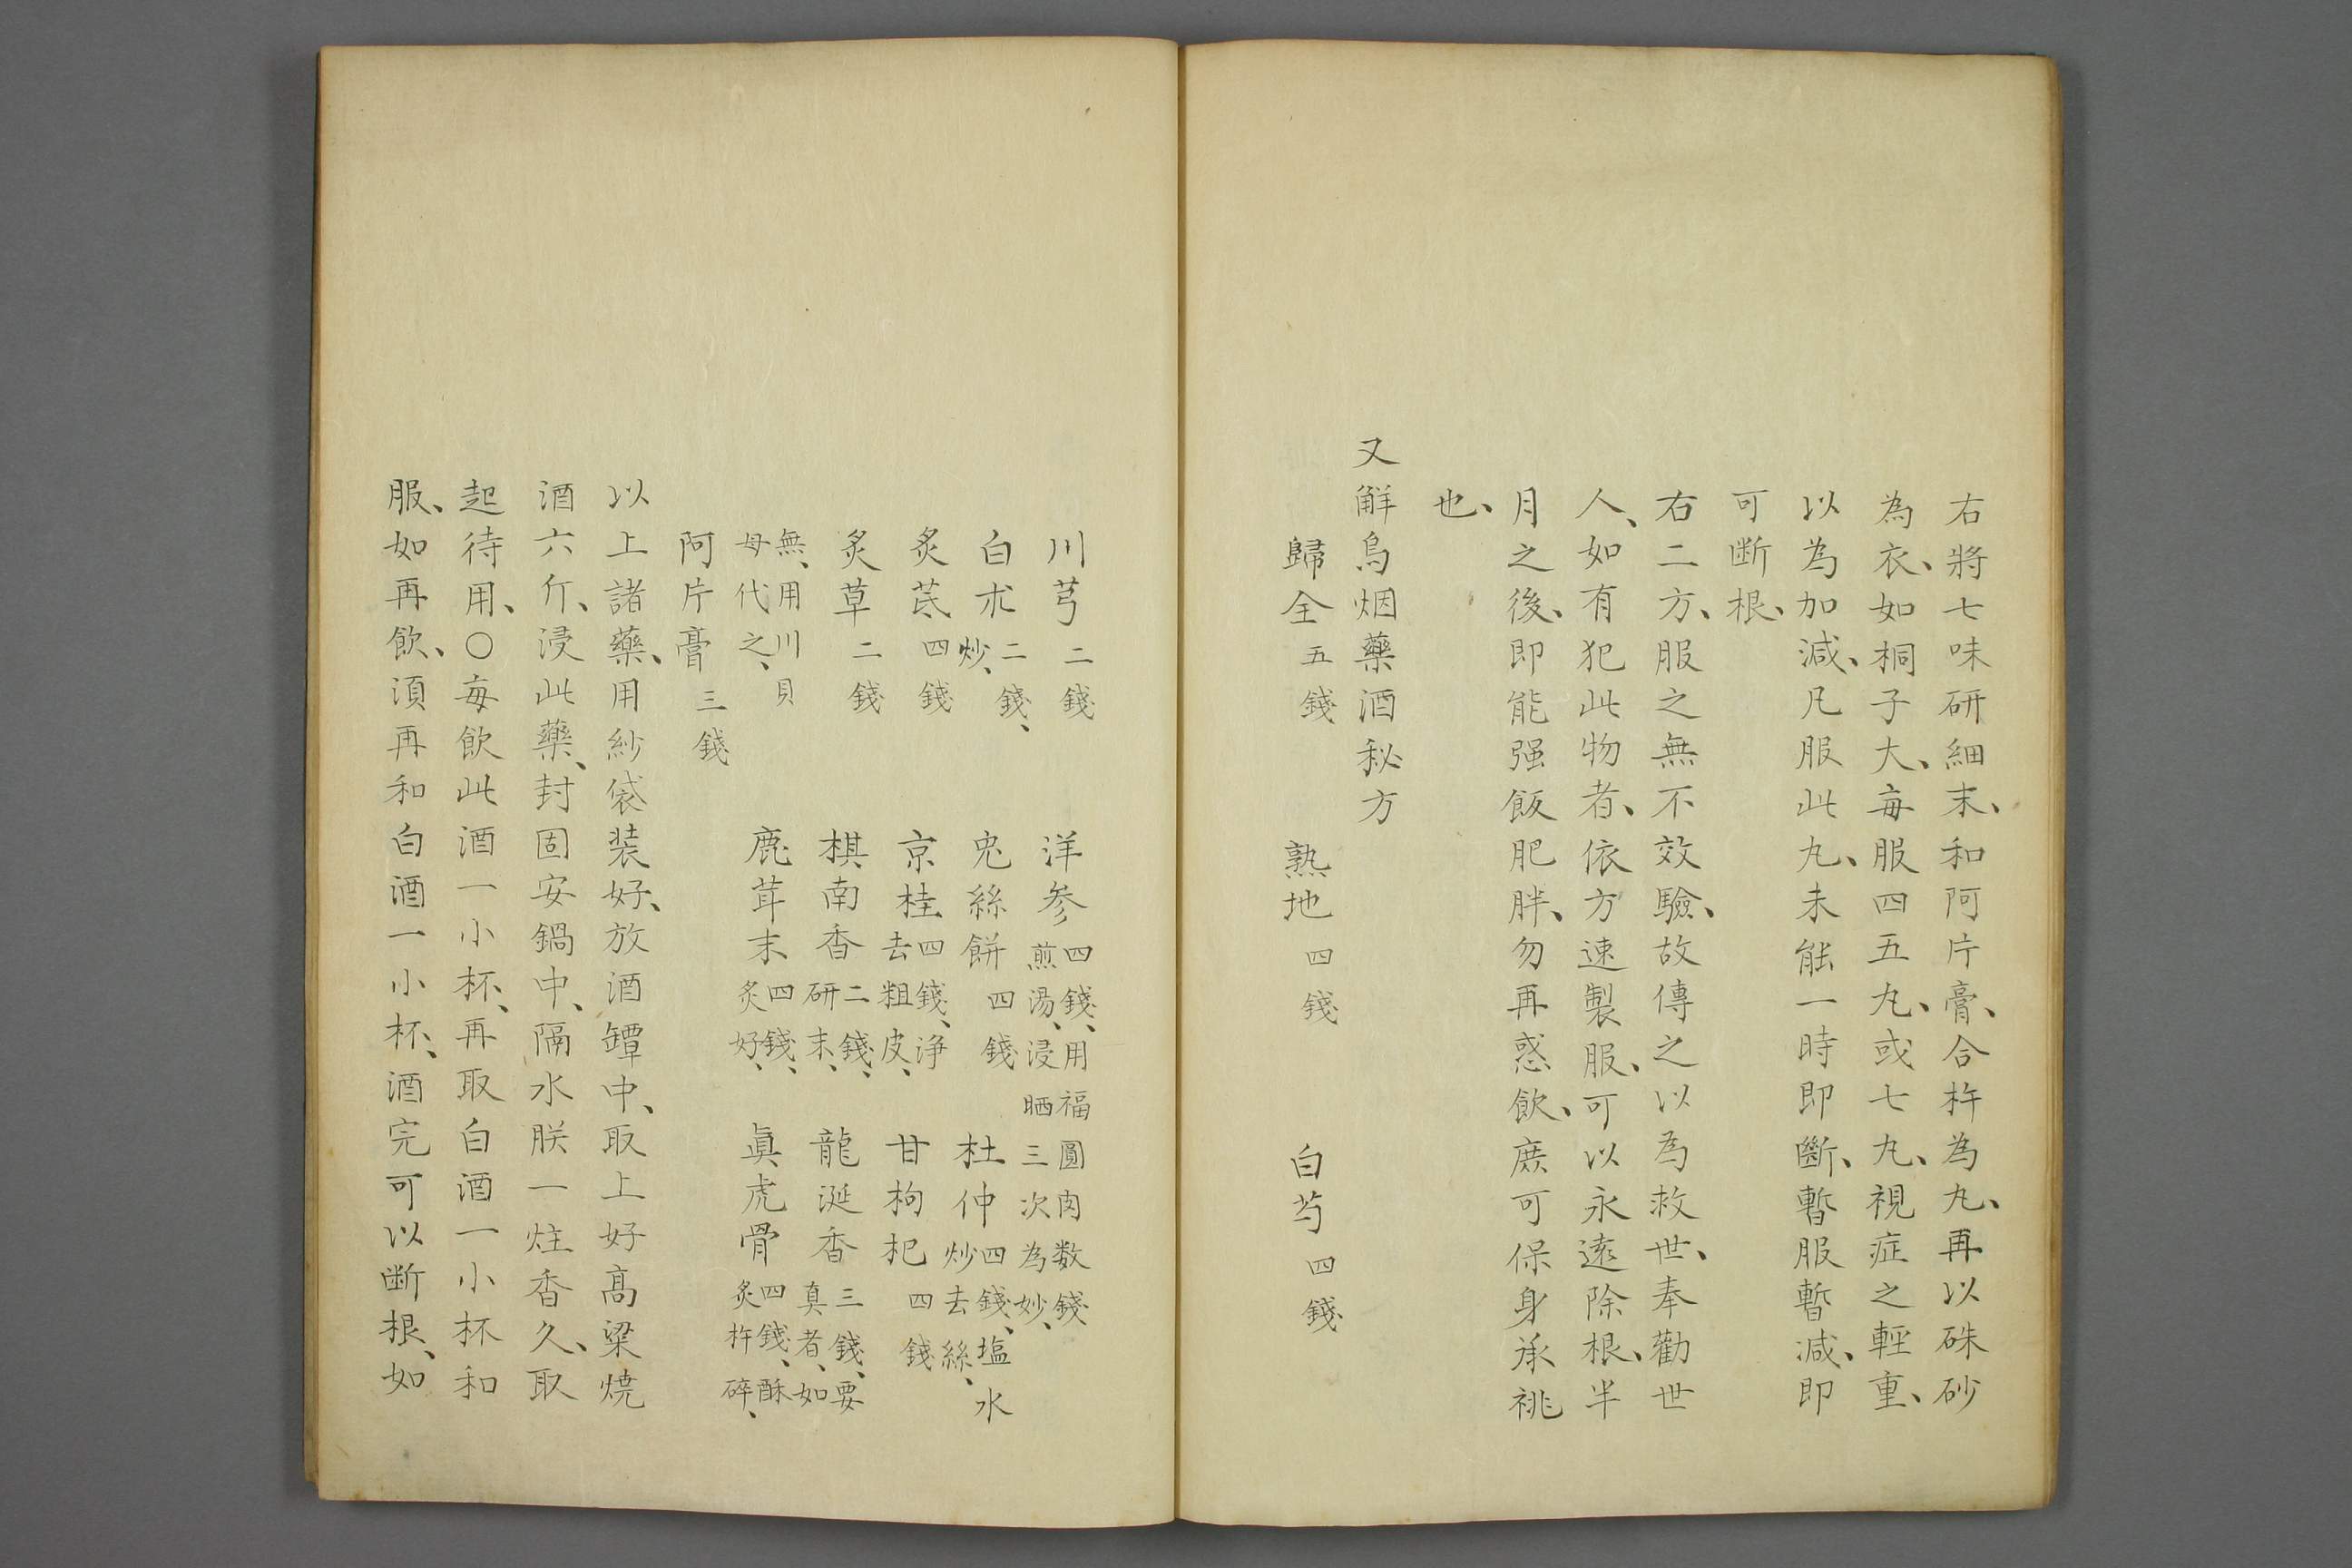 右將七味研細末、和阿片膏、合杵為丸、再以硃砂
為衣、如桐子大、每服四五丸、或七丸、視症之輕重、
以為加減、凡服此丸、未能一時即斷、暫服暫減、即
可断根、
右二方、服之無不效驗、故傳之以為救世、奉勸世
人、如有犯此物者、依方速製服、可以永遠除根、半
月之後、即能强飯肥胖、勿再惑飲、庶可保身承祧
也、
又解烏烟藥酒秘方
歸全五錢 熟地四錢 白芍四錢
川芎二錢 洋参四錢、用福圓肉数錢煎湯、浸晒三次為妙、
白朮二錢、炒、 兎絲餅四錢 杜仲四錢、塩水炒去絲、
炙芪四錢 京桂四錢、浄去粗皮、 甘枸杞四錢
炙草二錢 棋南香二錢、研末、 龍涎香三錢、要真者、如
無、用川貝母代之、 鹿茸末四錢、炙好、 眞虎骨四錢、酥炙杵碎、
阿片膏三錢
以上諸藥、用紗袋装好、放酒罈中、取上好高梁焼
酒六斤、浸此藥、封固安鍋中、隔水朕一炷香久、取
起待用、〇每飲此酒一小杯、再取白酒一小杯和
服、如再飲、須再和白酒一小杯、酒完可以断根、如